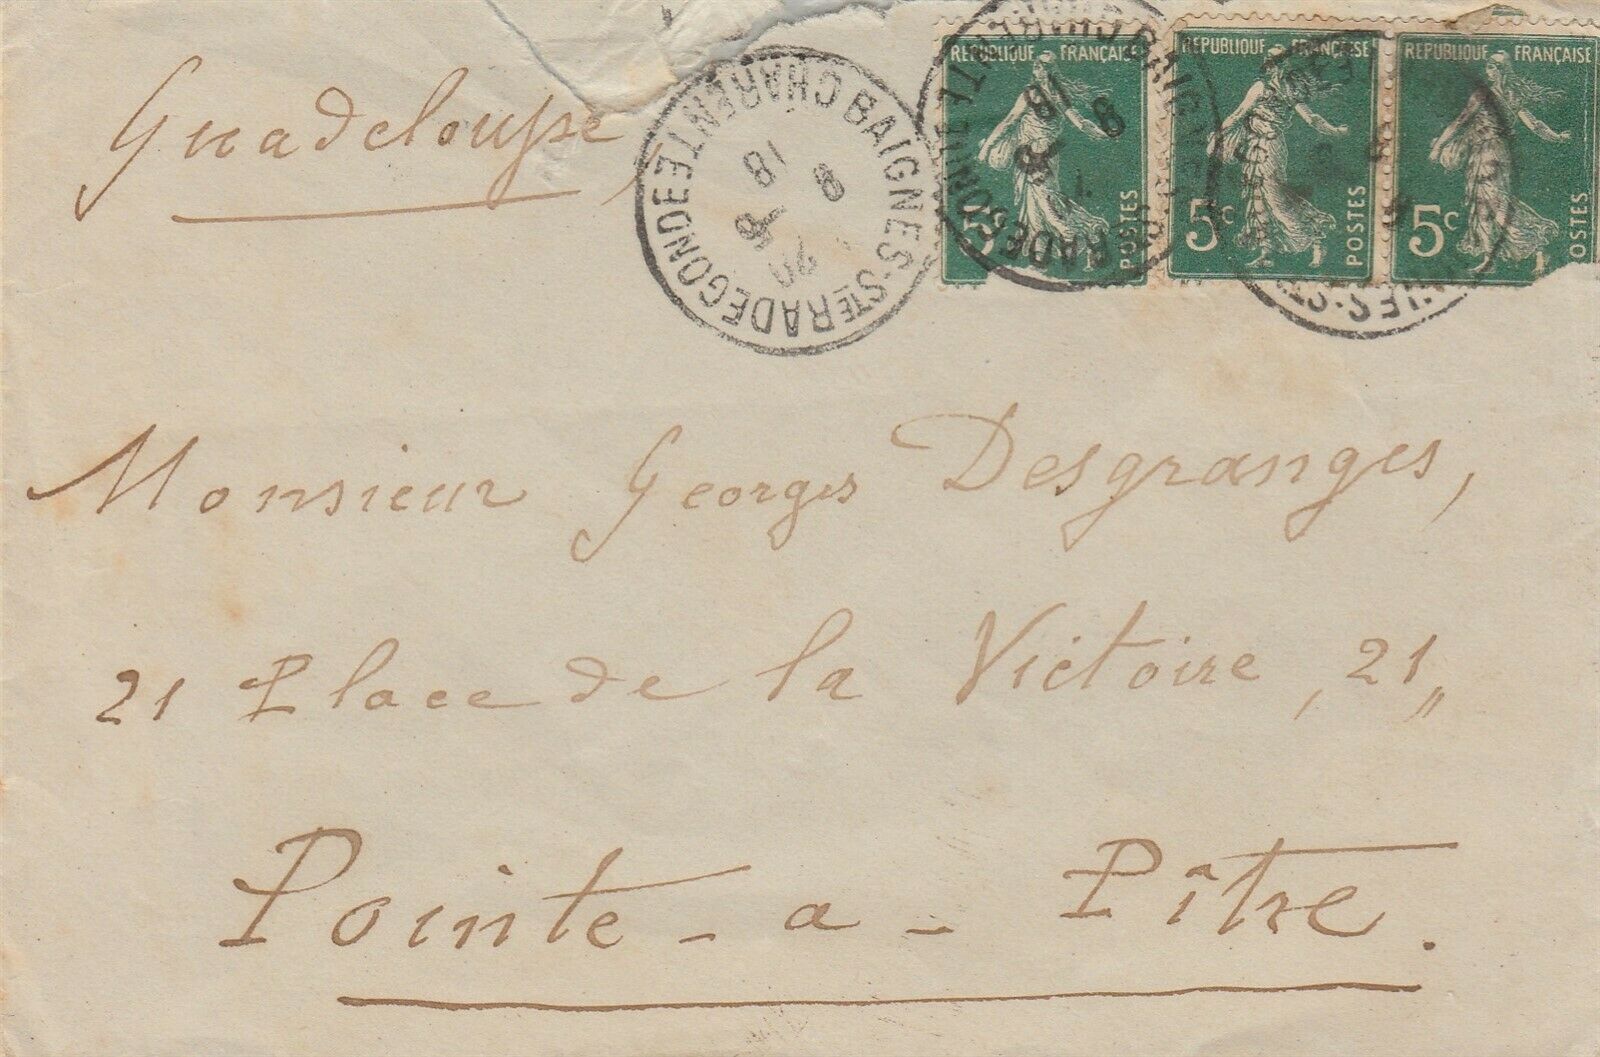 Guadeloupe,
BAIGNES-STE RADEGONDE
CHARENTE
18
8
8
20
REPUBLIQUE FRANÇAISE
5
POSTES
REPUBLIQUE FRANÇAISE
5c
POSTES
REPUBLIQUE FRANÇAISE
5c
POSTES
Monsieur Georges Desgranges,
21 Place de la Victoire, 21,,
Pointe-a-Pître.